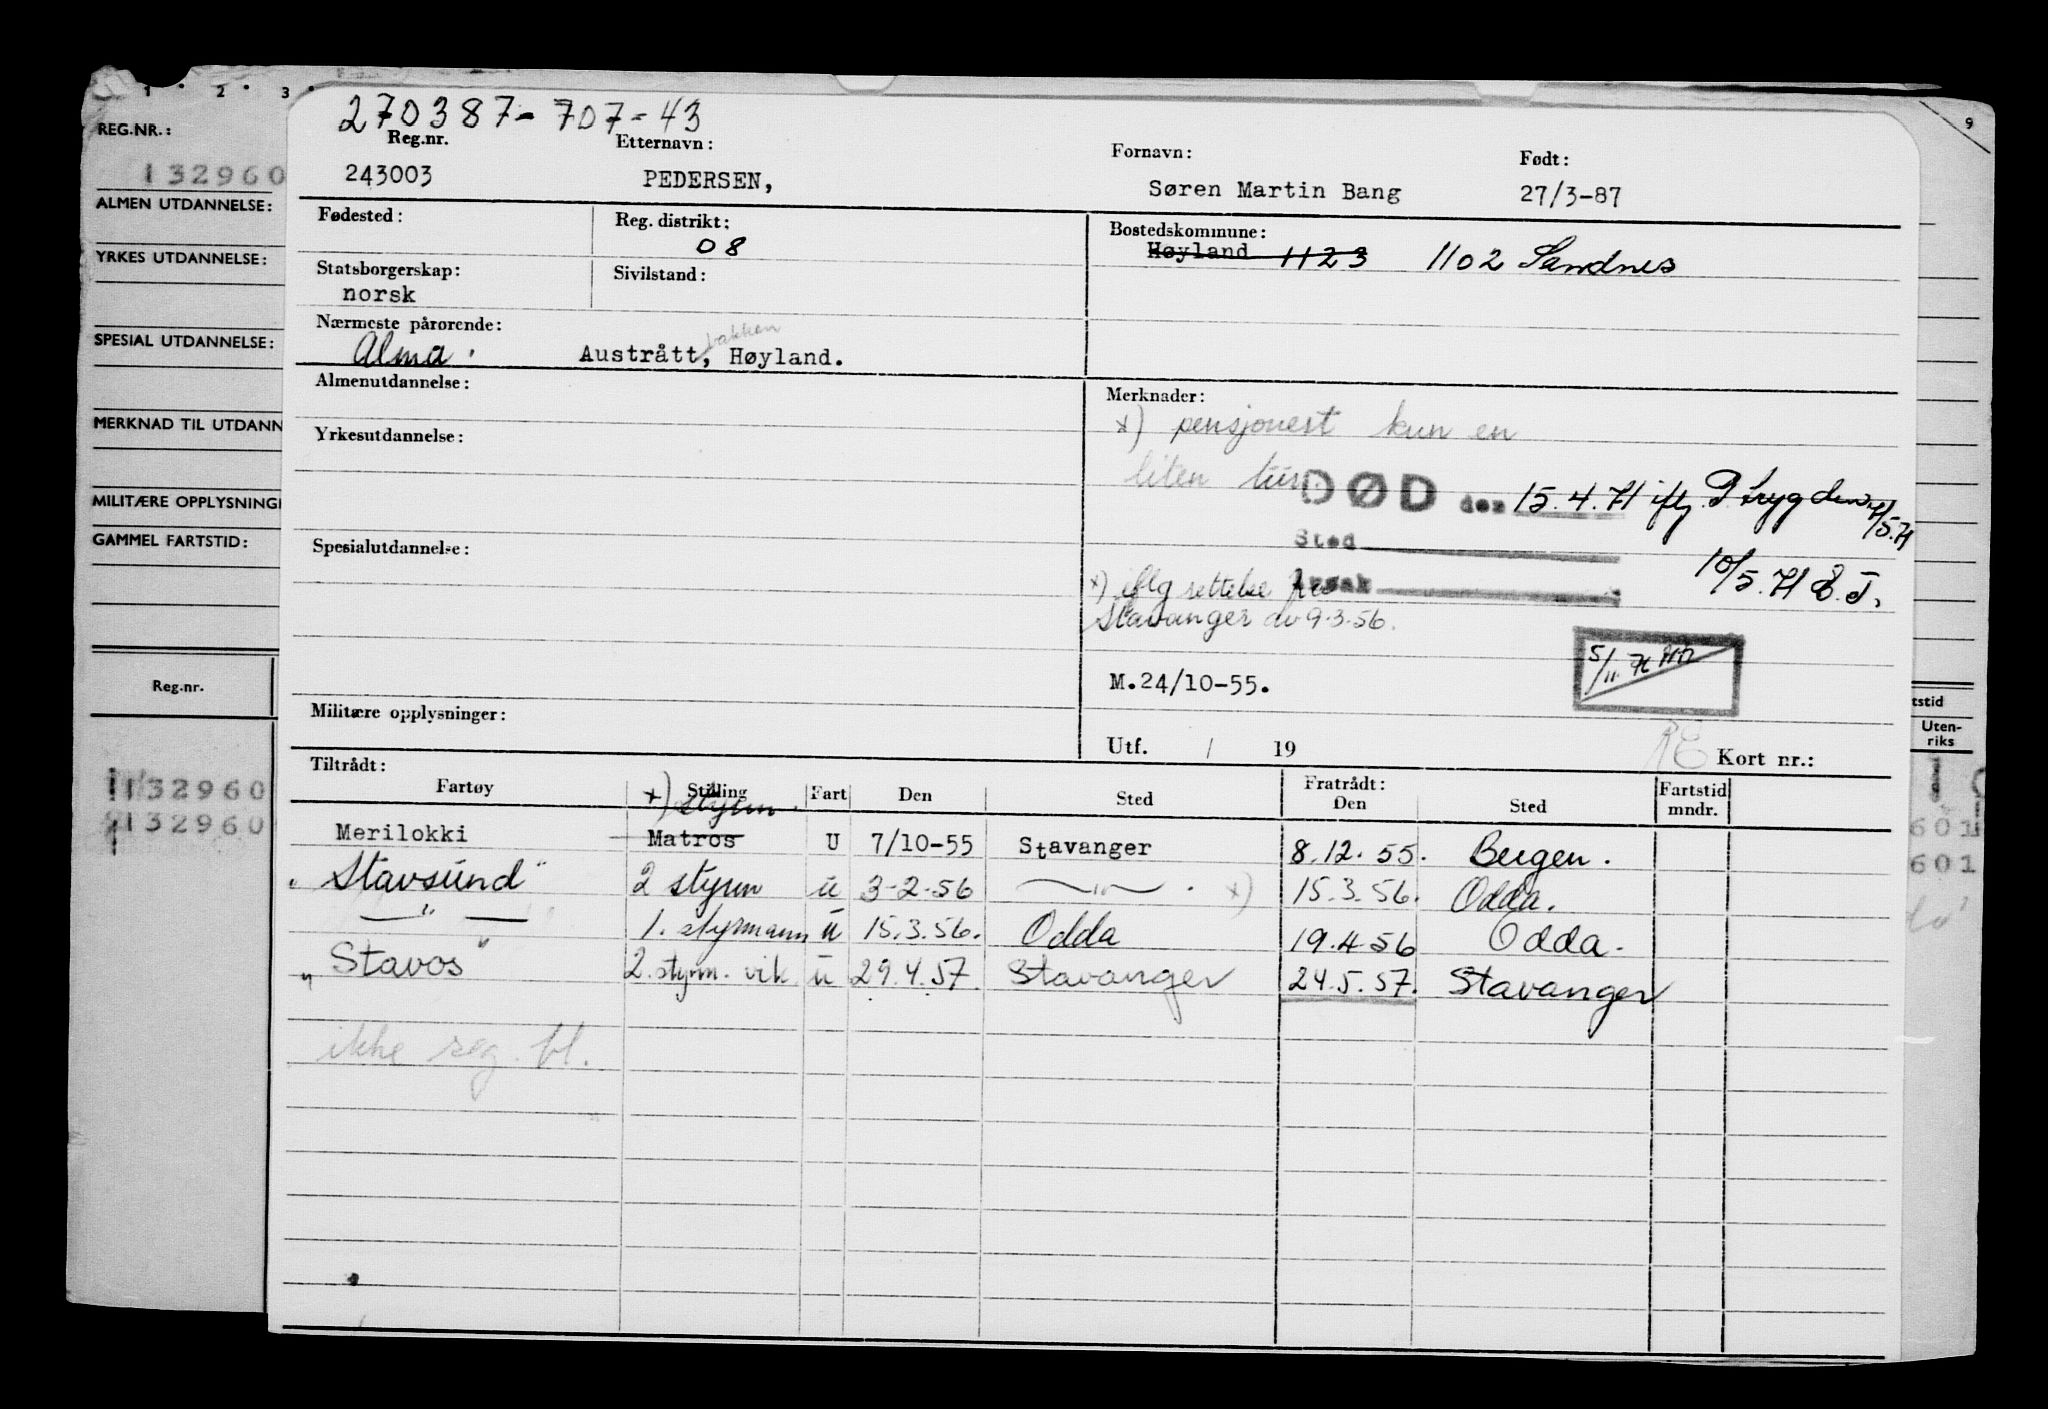 1 · 2 · 3 · 9
REG.NR.:
132960
ALMEN UTDANNELSE:
YRKES UTDANNELSE:
SPESIAL UTDANNELSE:
MERKNAD TIL UTDANN
MILITÆRE OPPLYSNING
GAMMEL FARTSTID:
Reg.nr.
132960
132960
270387-707-43
Reg.nr. Etternavn: Fornavn: Født:
243003 PEDERSEN, Søren Martin Bang 27/3-87
Fødested: Reg. distrikt: Bostedskommune:
08 Høyland 1123 1102 Sandnes
Statsborgerskap: Sivilstand:
norsk
Nærmeste pårørende:
bakken
Alma. Austrått, Høyland.
Almenutdannelse: Merknader:
x) pensjonest kun en
Yrkesutdannelse:
liten tur.
DØD den 15.4.71 iflg. P.trygden 4/5.71
Sted
Spesialutdannelse:
Årsak
10/5.71 E.T.
x) iflg rettelse fra
Stavanger av 9.3.56.
5/11. 71
M.24/10-55.
Militære opplysninger:
Utf. / 19 RE Kort nr.:
tstid
Uten-
riks
Tiltrådt: Fratrådt:
Fartøy Stilling Fart Den Sted Den Sted Fartstid mndr.
x) styrm.
Merilokki Matros U 7/10-55 Stavanger 8.12.55. Bergen.
"Stavsund" 2 styrm u 3-2-56 —"—. x) 15.3.56. Odda.
—"— 1. styrmann u 15.3.56. Odda 19.4.56 Odda.
"Stavos" 2. styrm. vik. u 29.4.57. Stavanger 24.5.57. Stavanger
ikke reg. bl.
601
601